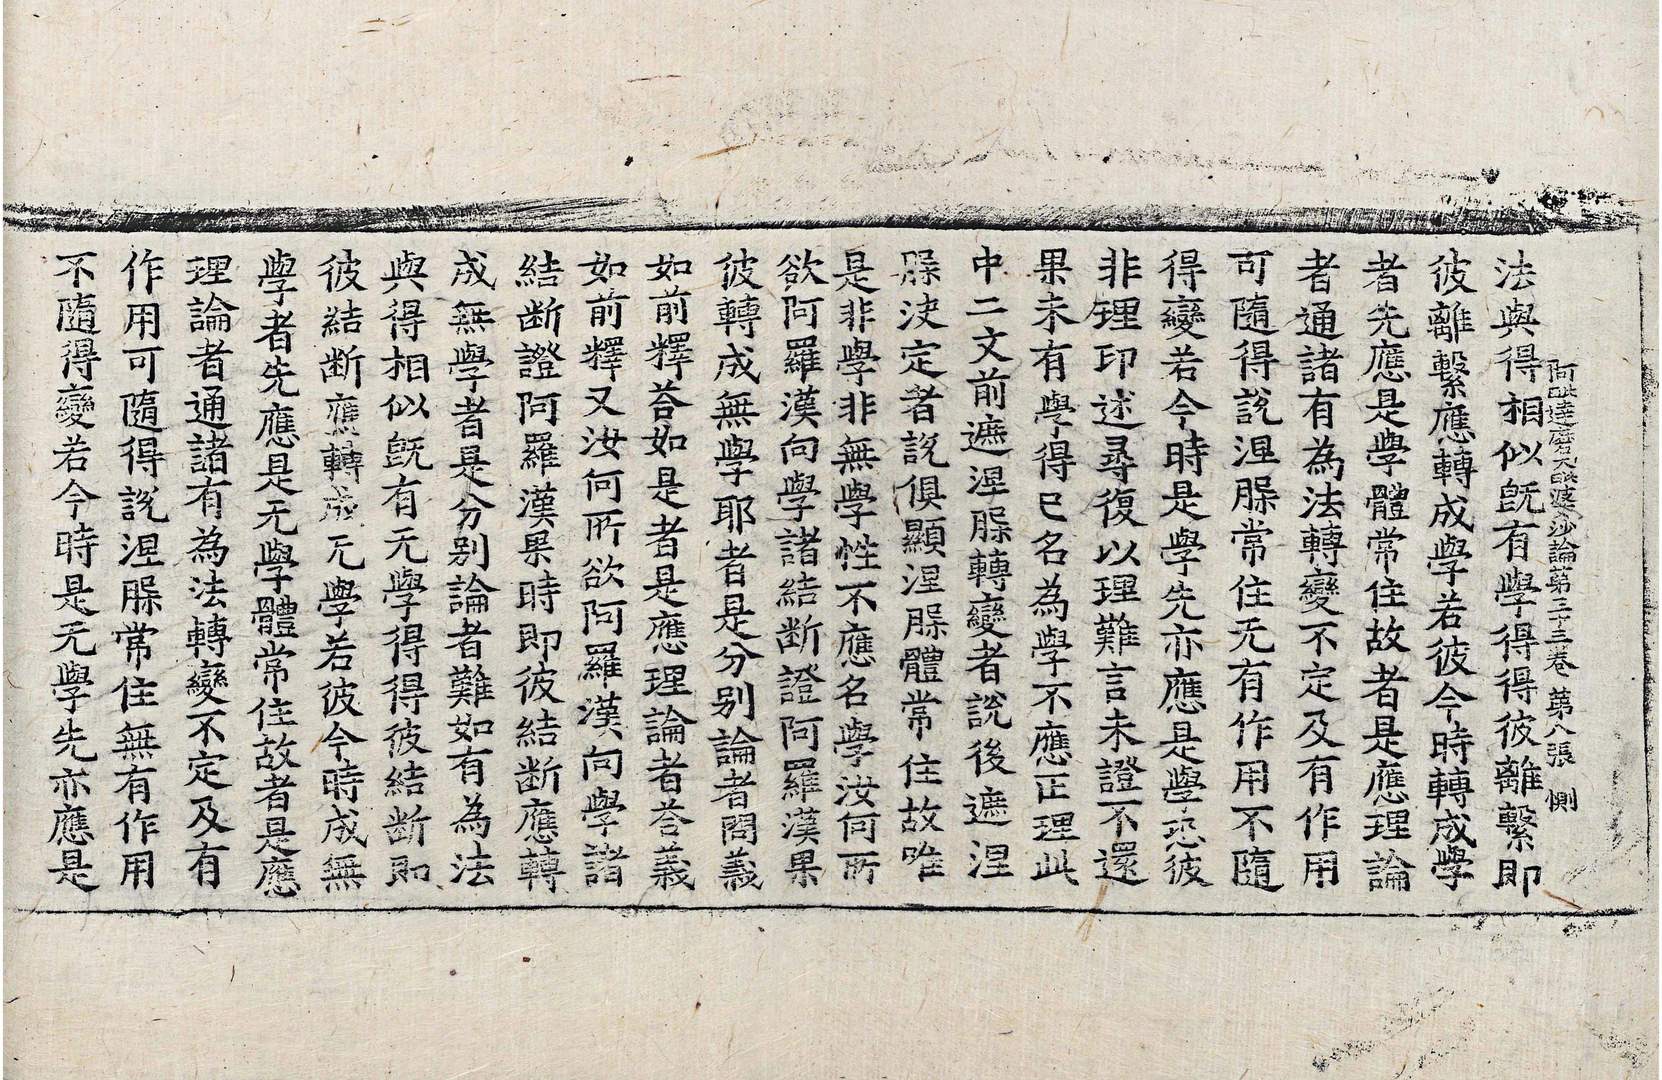 法與得相似旣有學得得彼離繫即
阿毗達磨大毗婆沙論第三十三卷 第八張 惻
彼離繫應轉成學若彼今時轉成學
者先應是學體常住故者是應理論
者通諸有為法轉變不定及有作用
可隨得說涅槃常住无有作用不隨
得變若今時是學先亦應是學恐彼
非理印述尋復以理難言未證不還
果未有學得已名為學不應正理此
中二文前遮涅槃轉變者說後遮涅
槃決定者說俱顯涅槃體常住故唯
是非學非無學性不應名學汝何所
欲阿羅漢向學諸結斷證阿羅漢果
彼轉成無學耶者是分別論者問義
如前釋荅如是者是應理論者荅義
如前釋又汝何所欲阿羅漢向學諸
結斷證阿羅漢果時即彼結斷應轉
成無學者是分別論者難如有為法
與得相似旣有无學得得彼結斷即
彼結斷應轉成无學若彼今時成無
學者先應是无學體常住故者是應
理論者通諸有為法轉變不定及有
作用可隨得說涅槃常住無有作用
不隨得變若今時是无學先亦應是